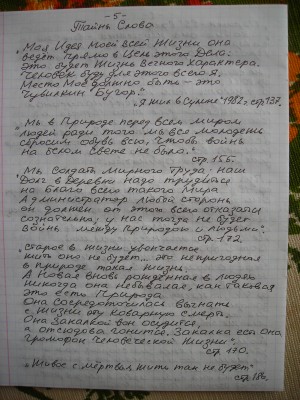 - 5 -
Тайны Слова
„Моя Идея моей всей Жизни она
ведёт прямо в Цель этого Дела:
Это будет Жизнь Вечного Характера.
Человек буду для этого всего Я.
Место Моё должно быть – это
Чувилкин "Бугор."
„Я жил в Сумске" 1982г стр 137.
„Мы в Природе перед всем миром
людей ради того мы все молодёжь
сбросим обувь всю, чтобы войны
на всём Свете не было."
стр. 155.
„Мы Солдаты Мирного Труда: наш
Долг в Деревни надо трудиться
на Благо всего такого Мира
Администратор любой стороны
он должен от этого всего отказаться
сознательно, и у нас тогда не будет
войны между Природою и людьми".
стр. 172.
„Старое в Жизни увенчается
жить оно не будет... это непригодная
в Природе такая жизнь.
А Новая вновь рождённая в людях
никогда она небывалая, как таковая
это есть Природа
Она сосредоточилась выгнать
с Жизни эту Коварную смерть.
Она Закалкой вон осудится,
а отсюдова гонится. Закалка есть она
Громофон Человеческой Жизни".
стр. 170.
„Живое с мёртвым жить там не будет"
стр. 186.